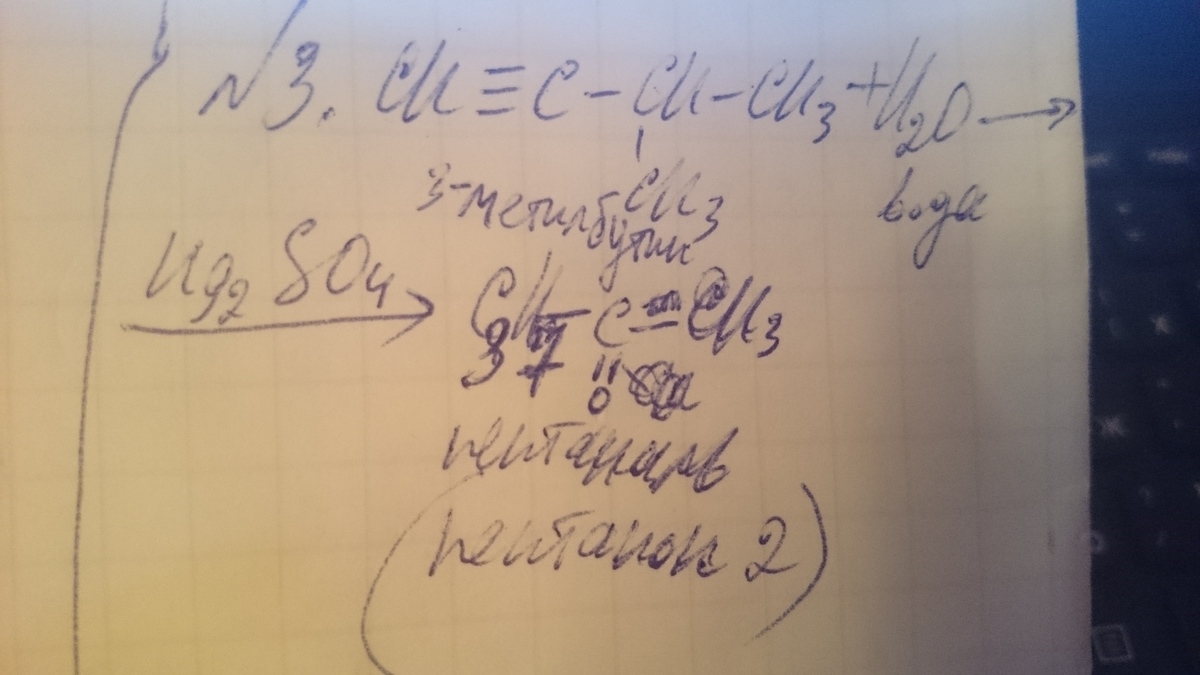 №3. CH ≡ C – CH – CH₃ + H₂O →
CH₃
3-метилбутин
вода
Hg₂SO₄ →
CH₃ – C – CH₃
O
пентаналь
(пентанон 2)